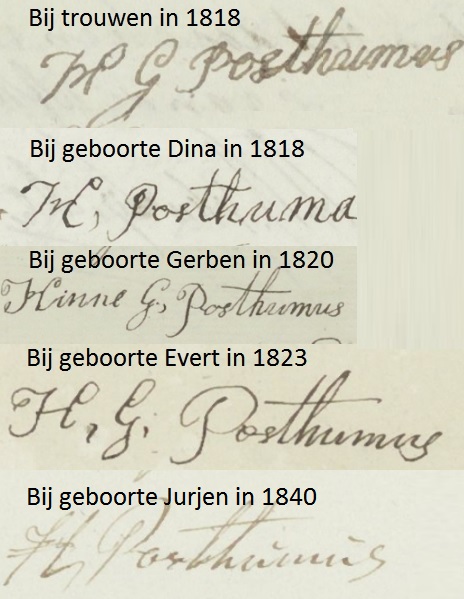 Bij trouwen in 1818
H G Posthumus
Bij geboorte Dina in 1818
H, Posthuma
Bij geboorte Gerben in 1820
Hinne G, Posthumus
Bij geboorte Evert in 1823
H, G, Posthumus
Bij geboorte Jurjen in 1840
H, Posthumus